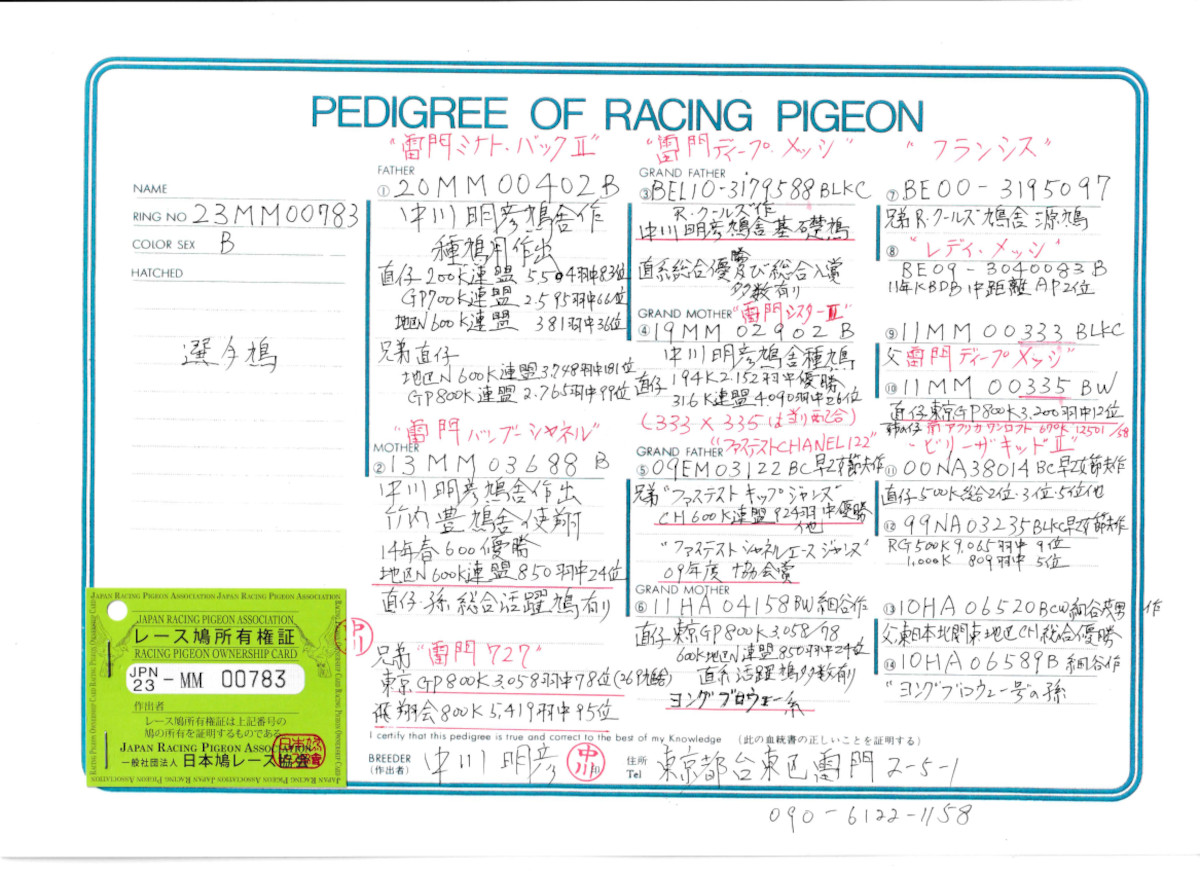 PEDIGREE OF RACING PIGEON
NAME
RING NO 23MM00783
COLOR SEX B
HATCHED
選手鳩
JAPAN RACING PIGEON ASSOCIATION
レース鳩所有権証
RACING PIGEON OWNERSHIP CARD
JPN 23 - MM 00783
作出者
レース鳩所有権証は上記番号の
鳩の所有を証明するものである
JAPAN RACING PIGEON ASSOCIATION
一般社団法人 日本鳩レース協会
"雷門ミナト・バックⅡ"
FATHER
① 20MM00402B
中川明彦鳩舎作
種鳩用作出
直仔 200K連盟 5,504羽中83位
GP700K連盟 2.595羽中66位
地区N600K連盟 381羽中36位
兄弟直仔
地区N600K連盟 3,748羽中181位
GP800K連盟 2.765羽中99位
"雷門バンブーシャネル"
MOTHER
② 13MM03688 B
中川明彦鳩舎作出
竹内豊鳩舎使翔
14年春600優勝
地区N600K連盟850羽中24位
直仔・孫 総合活躍鳩有り
兄弟 "雷門727"
東京GP800K3,058羽中78位
飛翔会800K5,419羽中95位
"雷門ディープ・メッシ"
GRAND FATHER
③ BEL10-3179588 BLKC
R.クールズ作
中川明彦鳩舎基礎鳩
直系総合優勝及び総合入賞
多数有り
GRAND MOTHER "雷門シスターⅢ"
④ 19MM02902 B
中川明彦鳩舎種鳩
直仔 194K2,152羽中優勝
316K連盟 4.090羽中26位
(333×335は当り配合)
"ファステストCHANEL122"
GRAND FATHER
⑤ 09EM03122 BC 早坂節夫作
兄弟"ファステスト キップジャンズ"
CH600K連盟 924羽中優勝
他
"ファステストシャネルエースジャンヌ"
09年度 協会賞
GRAND MOTHER
⑥ 11HA04158BW 細谷作
直仔 東京GP800K3.058/78
600K地区N連盟850羽中24位
直系活躍鳩多数有り
ヨングブロウェー系
"フランシス"
⑦ BE00-3195097
兄弟R.クールズ鳩舎 源鳩
⑧ "レディ・メッシ"
BE09-3040083 B
11年KBDB中距離AP2位
⑨ 11MM00333 BLKC
父"雷門ディープメッシ"
⑩ 11MM00335 BW
直仔東京GP800K3,200羽中12位
南アフリカワンロフト 670K 12501/58
"ビリーザキッドⅡ"
⑪ 00NA38014 BC 早坂節夫作
直仔500K総合2位・3位・5位他
⑫ 99NA03235BLKC早坂節夫作
RG500K9,065羽中 9位
1,000K 809羽中 5位
⑬ 10HA06520BCW細谷茂男作
父東日本北関東地区CH総合優勝
⑭ 10HA06589B 細谷作
"ヨングブロウェー号の孫
I certify that this pedigree is true and correct to the best of my Knowledge (この血統書の正しいことを証明する)
BREEDER (作出者) 中川明彦
住所 Tel 東京都台東区雷門2-5-1
090-6122-1158